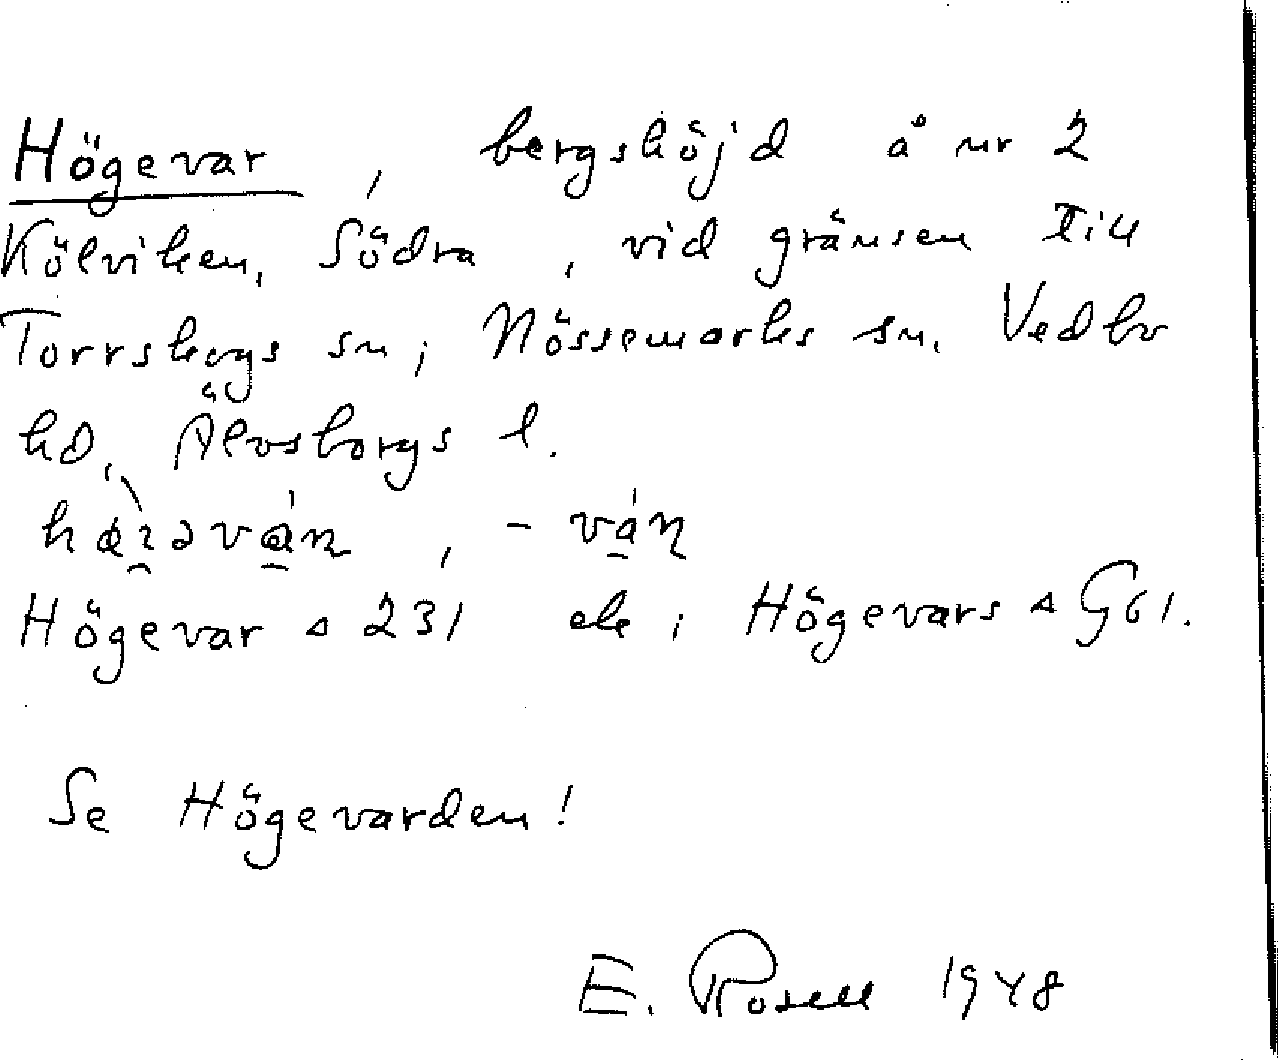 Högevar, bergshöjd å nr 2
Kölviken, Södra, vid gränsen till
Torrskogs sn; Nössemarks sn. Vedbo
hd, Älvsborgs l.
, -ván
Högevar ▵ 231 ek; Högevars ▵ G61.
Se Högevarden!
E. Rosell 1948